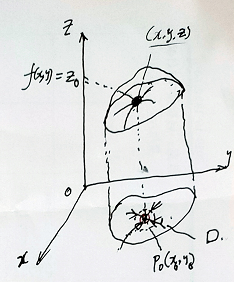 z
(x,y,z)
f(x,y)=z₀
y
o
x
D.
P₀(x₀,y₀)